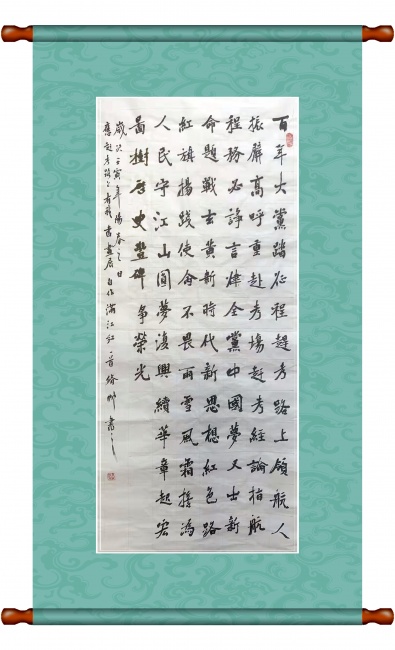 百年大黨踏征程趕考路上領航人
振臂高呼重赴考場赴考經論指航
程務必諍言燁全黨中國夢又出新
命題戰士黃新時代新思想紅色路
紅旗揚踐使命不畏雨雪風霜擔鴻
人民守江山圓夢復興續華章起宏
圖樹歷史豐碑爭榮光
歲次壬寅年陽春之日
應趕考路上有我書畫展自作滿江紅晉書